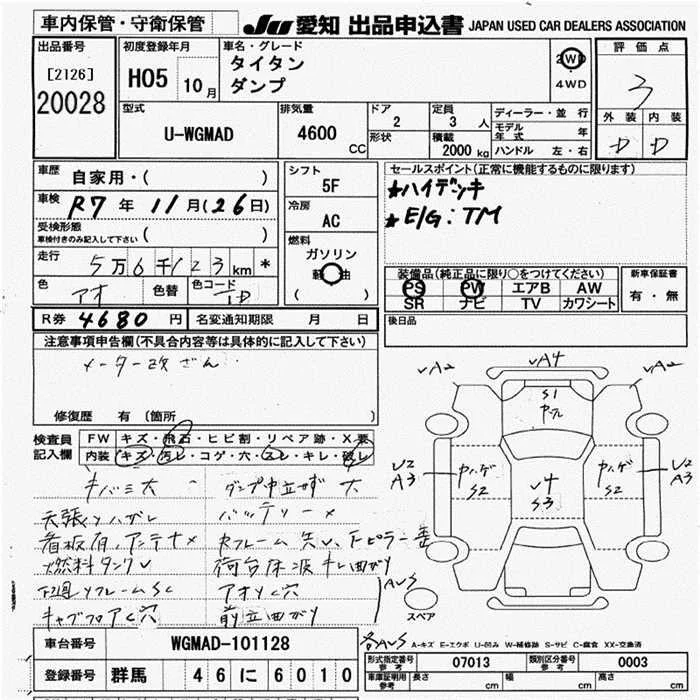 車内保管・守衛保管
JU 愛知 出品申込書 JAPAN USED CAR DEALERS ASSOCIATION
出品番号
[2126]
20028
初度登録年月
H05 10月
車名・グレード
タイタン
ダンプ
2WD
4WD
評価点
3
外装 内装
D D
型式
U-WGMAD
排気量
4600
CC
ドア
2
形状
定員
3 人
積載
2000 kg
ディーラー・並行
モデル年式 年
ハンドル 左・右
車歴
自家用・( )
車検
R7年 11月(26日)
受検形態
車検付きのみ記入して下さい ( )
走行
5万6千123km *
色
アオ
色替
色コード
シフト
5F
冷房
AC
燃料
ガソリン
軽油
( )
セールスポイント(正常に機能するものに限ります)
★ハイデッキ
★E/G:TM
装備品(純正品に限り○をつけてください)
PS PW エアB AW
SR ナビ TV カワシート
新車保証書
有・無
後日品
R券 4680 円
名変通知期限 月 日
注意事項申告欄(不具合内容等は具体的に記入して下さい)
メーター改ざん
修復歴 有 〔箇所 〕
検査員記入欄
FW キズ・飛石・ヒビ割・リペア跡・X要
内装 キズ・汚レ・コゲ・穴・スレ・キレ・破レ
キバミ大
ダンプ中立せず 大
天張りハガレ
バッテリー×
看板有、アンテナ×
燃料タンクU
荷台床波キレ曲がり
下廻りフレームSC
アオリC穴
AUS
キャブフロアC穴
前立曲がり
UA2
UA4
UA2
S1
U2
A3
中ハゲ
S2
U4
S3
中ハゲ
S2
U2
A3
スペア
各AUS
A-キズ E-エクボ U-凹み W-補修跡 S-サビ C-腐食 XX-交換済
車台番号
WGMAD-101128
登録番号
群馬 46 に 6010
型式指定番号
参考
07013
類別区分番号
参考
0003
車庫証明用
参考
長さ cm 幅 cm 高さ cm